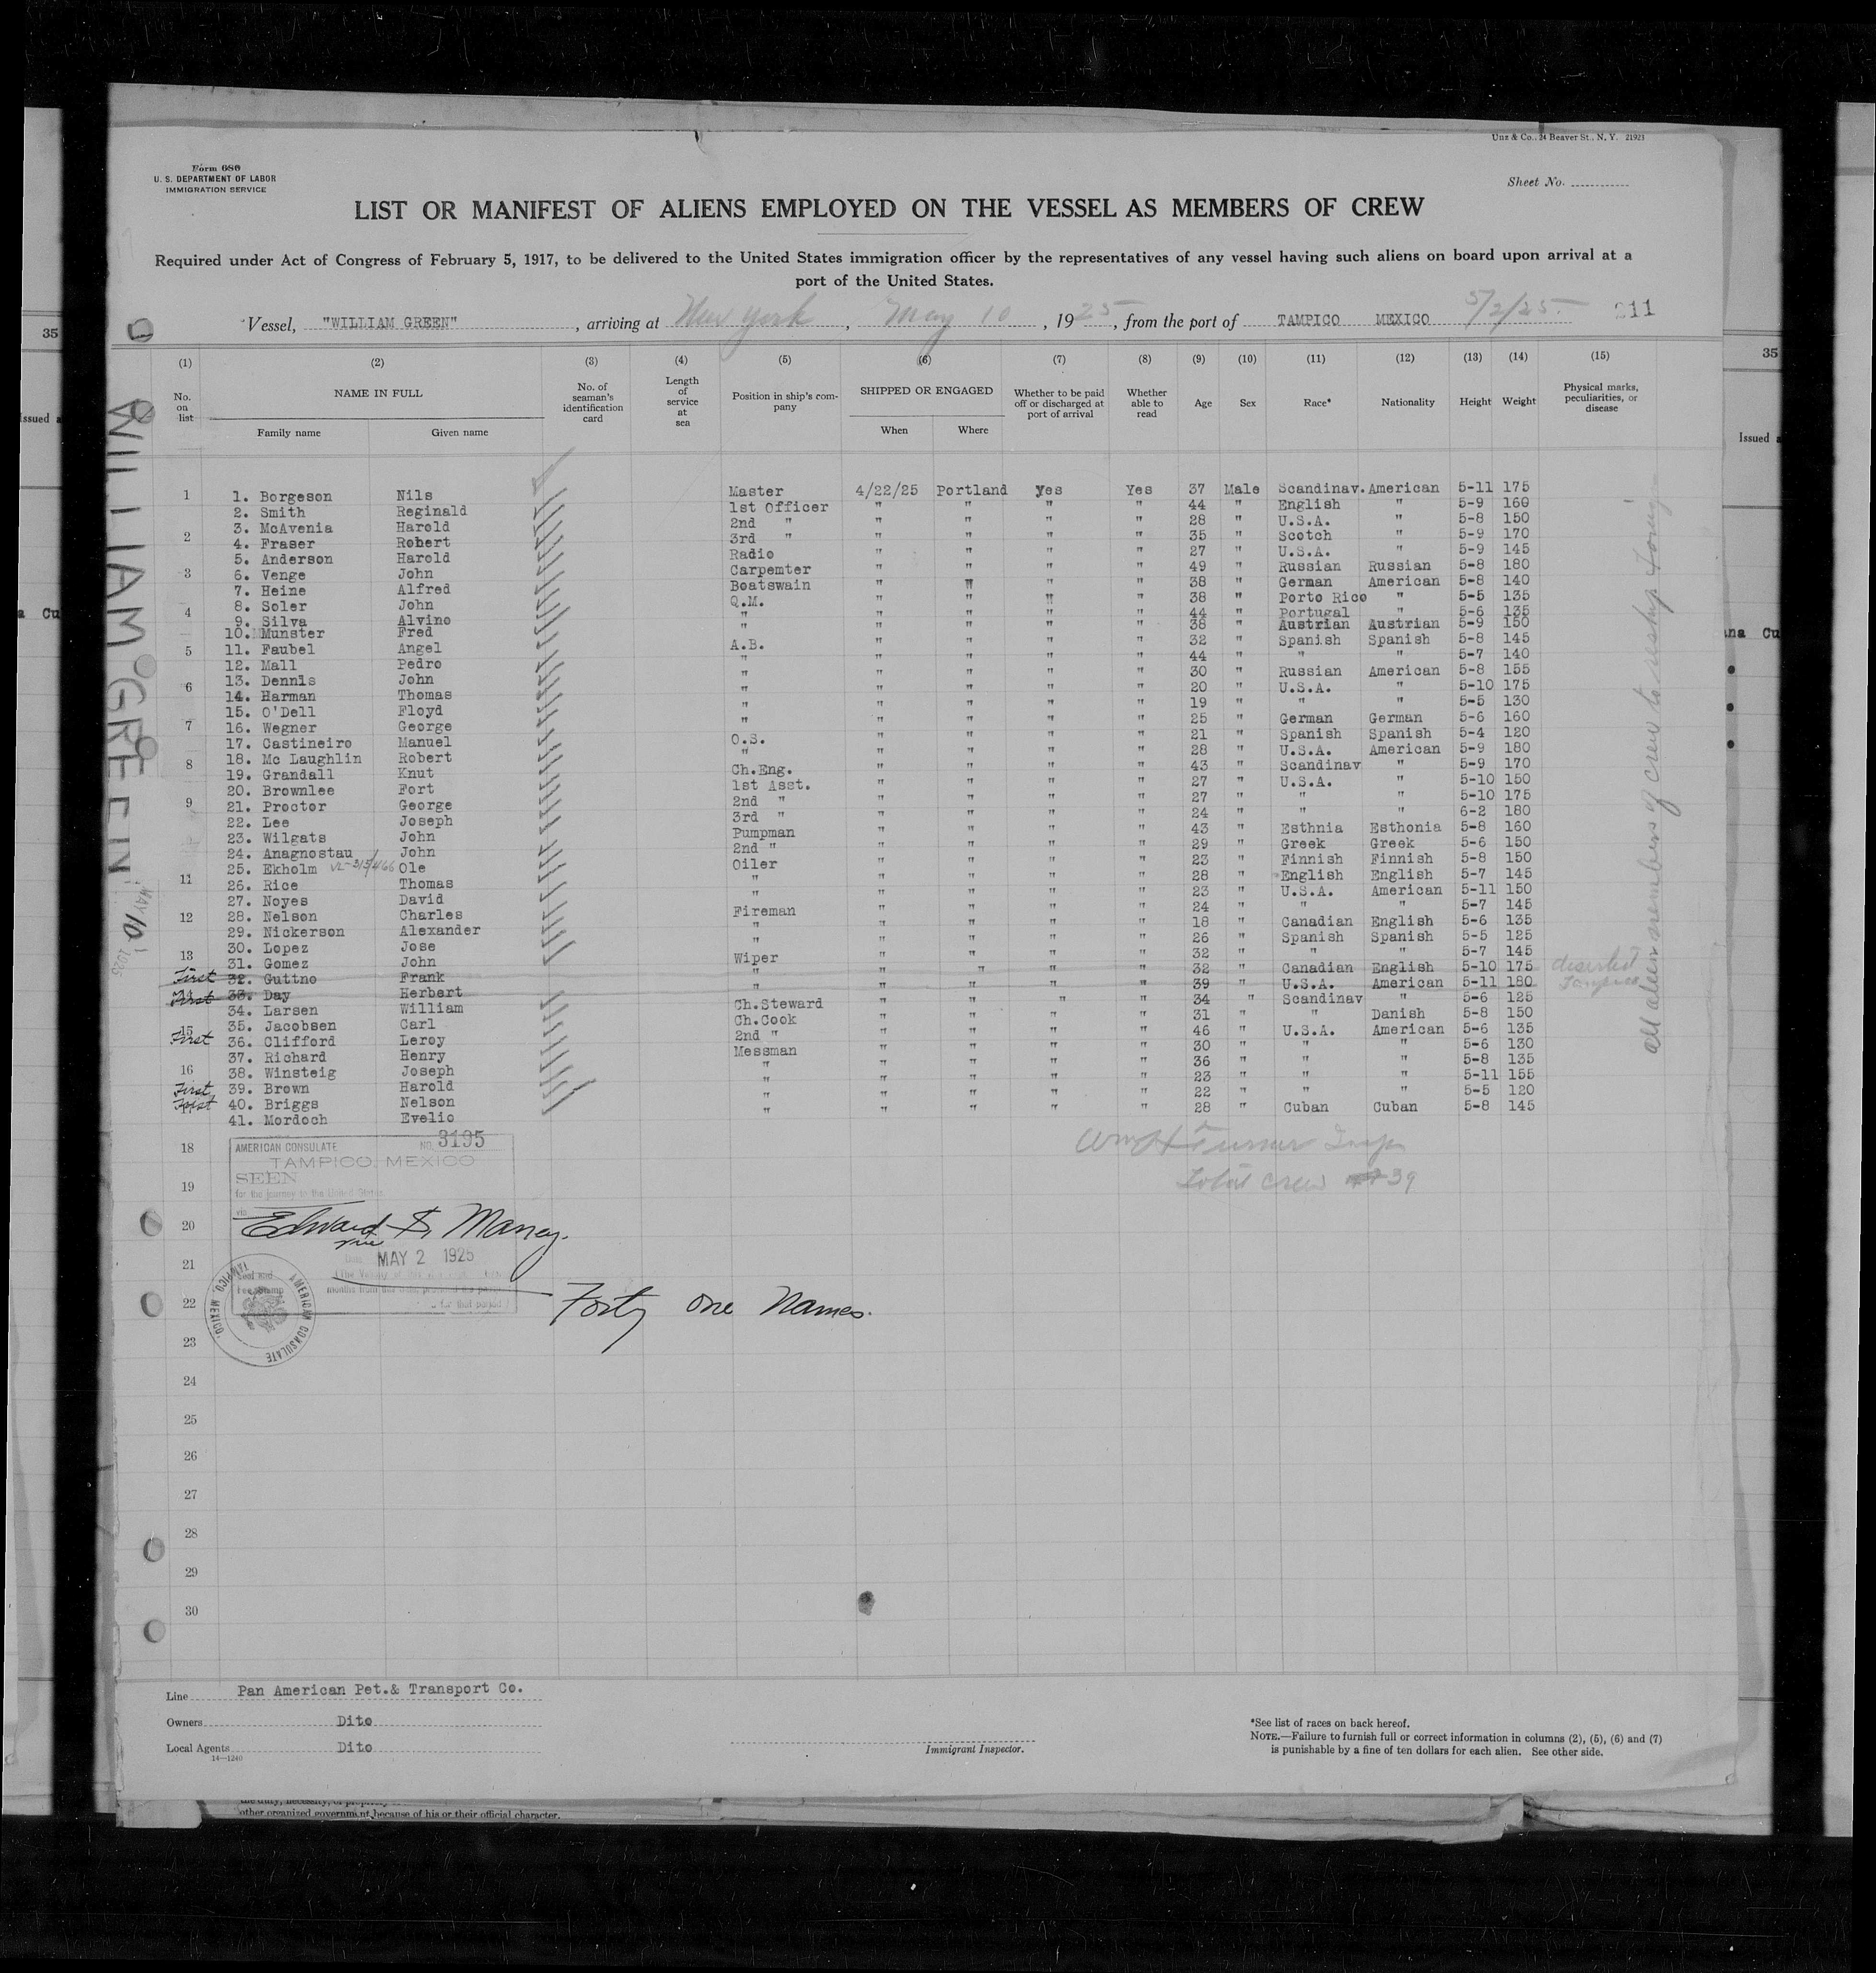 Unz & Co., 24 Beaver St., N. Y. 21921
Form 686
U. S. DEPARTMENT OF LABOR
IMMIGRATION SERVICE
Sheet No.
LIST OR MANIFEST OF ALIENS EMPLOYED ON THE VESSEL AS MEMBERS OF CREW
Required under Act of Congress of February 5, 1917, to be delivered to the United States immigration officer by the representatives of any vessel having such aliens on board upon arrival at a
port of the United States.
Vessel, "WILLIAM GREEN", arriving at New York, May 10, 1925, from the port of TAMPICO MEXICO 5/2/25 211
(1) (2) (3) (4) (5) (6) (7) (8) (9) (10) (11) (12) (13) (14) (15)
No. on list NAME IN FULL Family name Given name No. of seaman's identification card Length of service at sea Position in ship's company SHIPPED OR ENGAGED When Where Whether to be paid off or discharged at port of arrival Whether able to read Age Sex Race* Nationality Height Weight Physical marks, peculiarities, or disease
1 1. Borgeson Nils Master 4/22/25 Portland yes Yes 37 Male Scandinav. American 5-11 175
2. Smith Reginald 1st Officer " " " " 44 " English " 5-9 160
3. McAvenia Harold 2nd " " " " " 28 " U.S.A. " 5-8 150
2 4. Fraser Robert 3rd " " " " " 35 " Scotch " 5-9 170
5. Anderson Harold Radio " " " " 27 " U.S.A. " 5-9 145
3 6. Venge John Carpemter " " " " 49 " Russian Russian 5-8 180
7. Heine Alfred Boatswain " " " " 38 " German American 5-8 140
8. Soler John Q.M. " " " " 38 " Porto Rico " 5-5 135
4 9. Silva Alvino " " " " " 44 " Portugal " 5-6 135
10. Munster Fred " " " " 38 " Austrian Austrian 5-9 150
5 11. Faubel Angel A.B. " " " " 32 " Spanish Spanish 5-8 145
12. Mall Pedro " " " " " 44 " " " 5-7 140
13. Dennis John " " " " " 30 " Russian American 5-8 155
6 14. Harman Thomas " " " " " 20 " U.S.A. " 5-10 175
15. O'Dell Floyd " " " " " 19 " " " 5-5 130
7 16. Wegner George " " " " " 25 " German German 5-6 160
17. Castineiro Manuel O.S. " " " " 21 " Spanish Spanish 5-4 120
18. Mc Laughlin Robert " " " " " 28 " U.S.A. American 5-9 180
8 19. Grandall Knut Ch.Eng. " " " " 43 " Scandinav " 5-9 170
20. Brownlee Fort 1st Asst. " " " " 27 " U.S.A. " 5-10 150
9 21. Proctor George 2nd " " " " " 27 " " " 5-10 175
22. Lee Joseph 3rd " " " " " 24 " " " 6-2 180
23. Wilgats John Pumpman " " " " 43 " Esthnia Esthonia 5-8 160
24. Anagnostau John 2nd " " " " " 29 " Greek Greek 5-6 150
25. Ekholm Ole Oiler " " " " 23 " Finnish Finnish 5-8 150
11 26. Rice Thomas " " " " " 28 " English English 5-7 145
27. Noyes David " " " " " 23 " U.S.A. American 5-11 150
12 28. Nelson Charles Fireman " " " " 24 " " " 5-7 145
29. Nickerson Alexander " " " " " 18 " Canadian English 5-6 135
30. Lopez Jose " " " " " 26 " Spanish Spanish 5-5 125
13 31. Gomez John Wiper " " " " 32 " " " 5-7 145
First 32. Guttno Frank " " " " " 32 " Canadian English 5-10 175 deserted
First 33. Day Herbert " " " " " 39 " U.S.A. American 5-11 180 Tampico
34. Larsen William Ch.Steward " " " " 34 " Scandinav " 5-6 125
15 35. Jacobsen Carl Ch.Cook " " " " 31 " " Danish 5-8 150
First 36. Clifford Leroy 2nd " " " " " 46 " U.S.A. American 5-6 135
37. Richard Henry Messman " " " " 30 " " " 5-6 130
16 38. Winsteig Joseph " " " " " 36 " " " 5-8 135
First 39. Brown Harold " " " " " 23 " " " 5-11 155
First 40. Briggs Nelson " " " " " 22 " " " 5-5 120
41. Mordoch Evelio " " " " " 28 " Cuban Cuban 5-8 145
all alien members of crew to reship foreign
WILLIAM GREEN
MAY 10 1925
18 AMERICAN CONSULATE NO. 3195
TAMPICO, MEXICO
SEEN
for the journey to the United States
via
Wm H Turner Insp
Total crew 39
19
20 Edward S. Maney.
vice
MAY 2 1925
21
22 Forty one Names.
AMERICAN CONSULATE TAMPICO, MEXICO.
Seal and
Fee Stamp
23
24
25
26
27
28
29
30
Line Pan American Pet.& Transport Co.
Owners Dito
Local Agents Dito
14—1240
Immigrant Inspector.
*See list of races on back hereof.
NOTE.—Failure to furnish full or correct information in columns (2), (5), (6) and (7)
is punishable by a fine of ten dollars for each alien. See other side.
other organized government because of his or their official character.
35
Issued a
35
Issued a
ana Cu